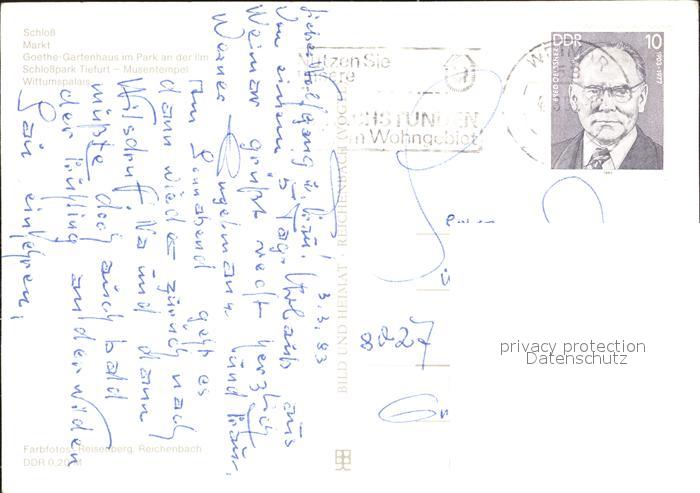 Schloß
Markt
Goethe-Gartenhaus im Park an der Ilm
Schloßpark Tiefurt – Musentempel
Wittumspalais
Nutzen Sie
unsere
SPRECHSTUNDEN
im Wohngebiet
DDR 10
3.3.83
Lieber Wolfgang u. Frau!
Von einem 5 Tage Urlaub aus
Weimar grüßt recht herzlich
Werner Engelmann und Frau.
Am Sonnabend geht es
dann wieder zurück nach
Wilsdruf. Na und dann
müßte doch auch bald
der Frühling an der wilden
Sau einkehren.
BILD UND HEIMAT · REICHENBACH (VOGTL)
8227
privacy protection
Datenschutz
Farbfotos: Reisenberg, Reichenbach
DDR 0,20 M